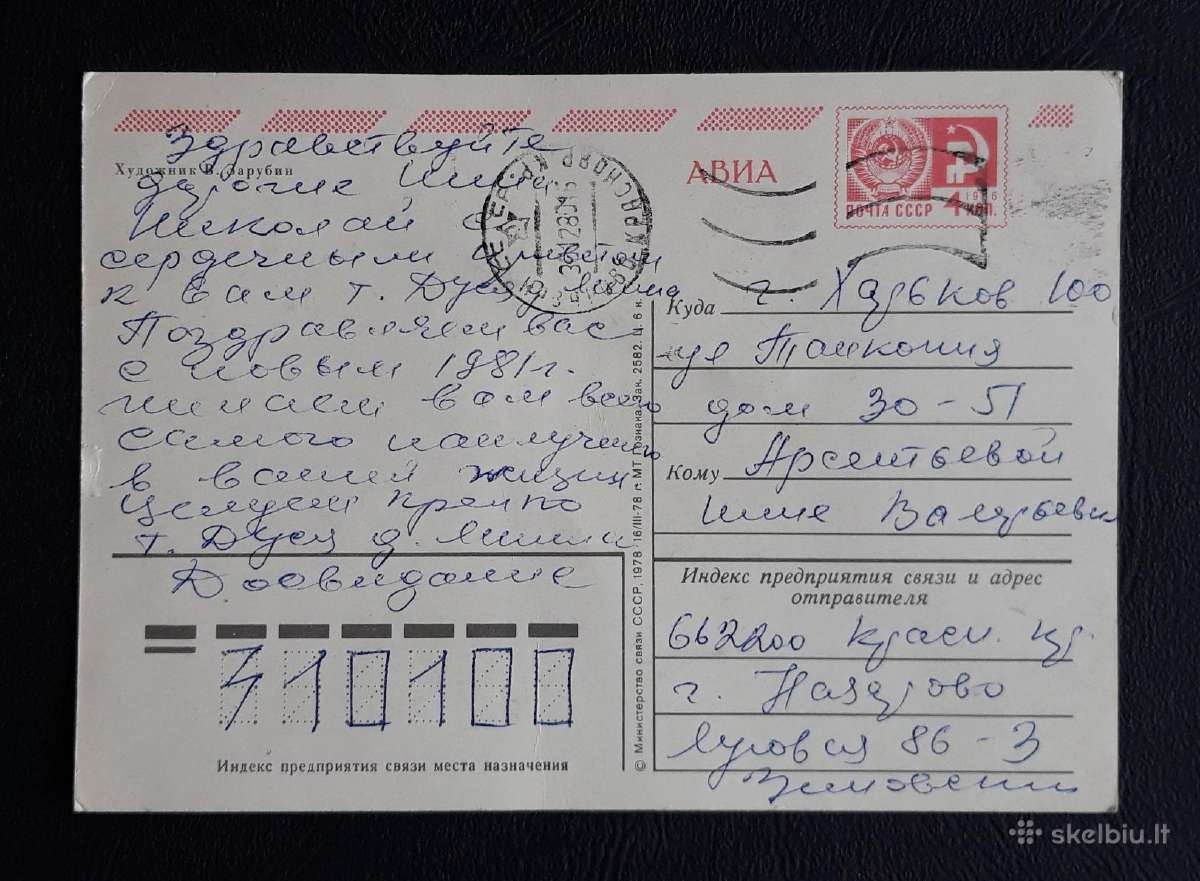 Здравствуйте
Художник В. Зарубин
дорогие Инна
Николай с
сердечным приветом
к вам т. Дуся д. Миша
Поздравляем вас
с Новым 1981 г.
желаем вам всего
самого наилучшего
в вашей жизни
Целуем крепко
т. Дуся д. Миша
Досвидание
АВИА
ПОЧТА СССР 4 КОП.
1976
Куда г. Харьков 100
ул Танкопия
дом 30-51
Кому Арсентьевой
Инне Валерьевне
Индекс предприятия связи и адрес
отправителя
662200 Красн. кр.
г. Назарово
Луговая 86-3
310100
Индекс предприятия связи места назначения
© Министерство связи СССР, 1978 16/III-78 г. МТ Гознака. Зак. 2582. Ц. 6 к.
skelbiu.lt